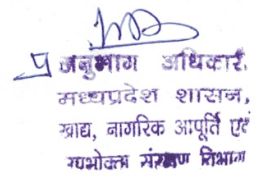 प्र अनुभाग अधिकारी,
मध्यप्रदेश शासन,
खाद्य, नागरिक आपूर्ति एवं
उपभोक्ता संरक्षण विभाग